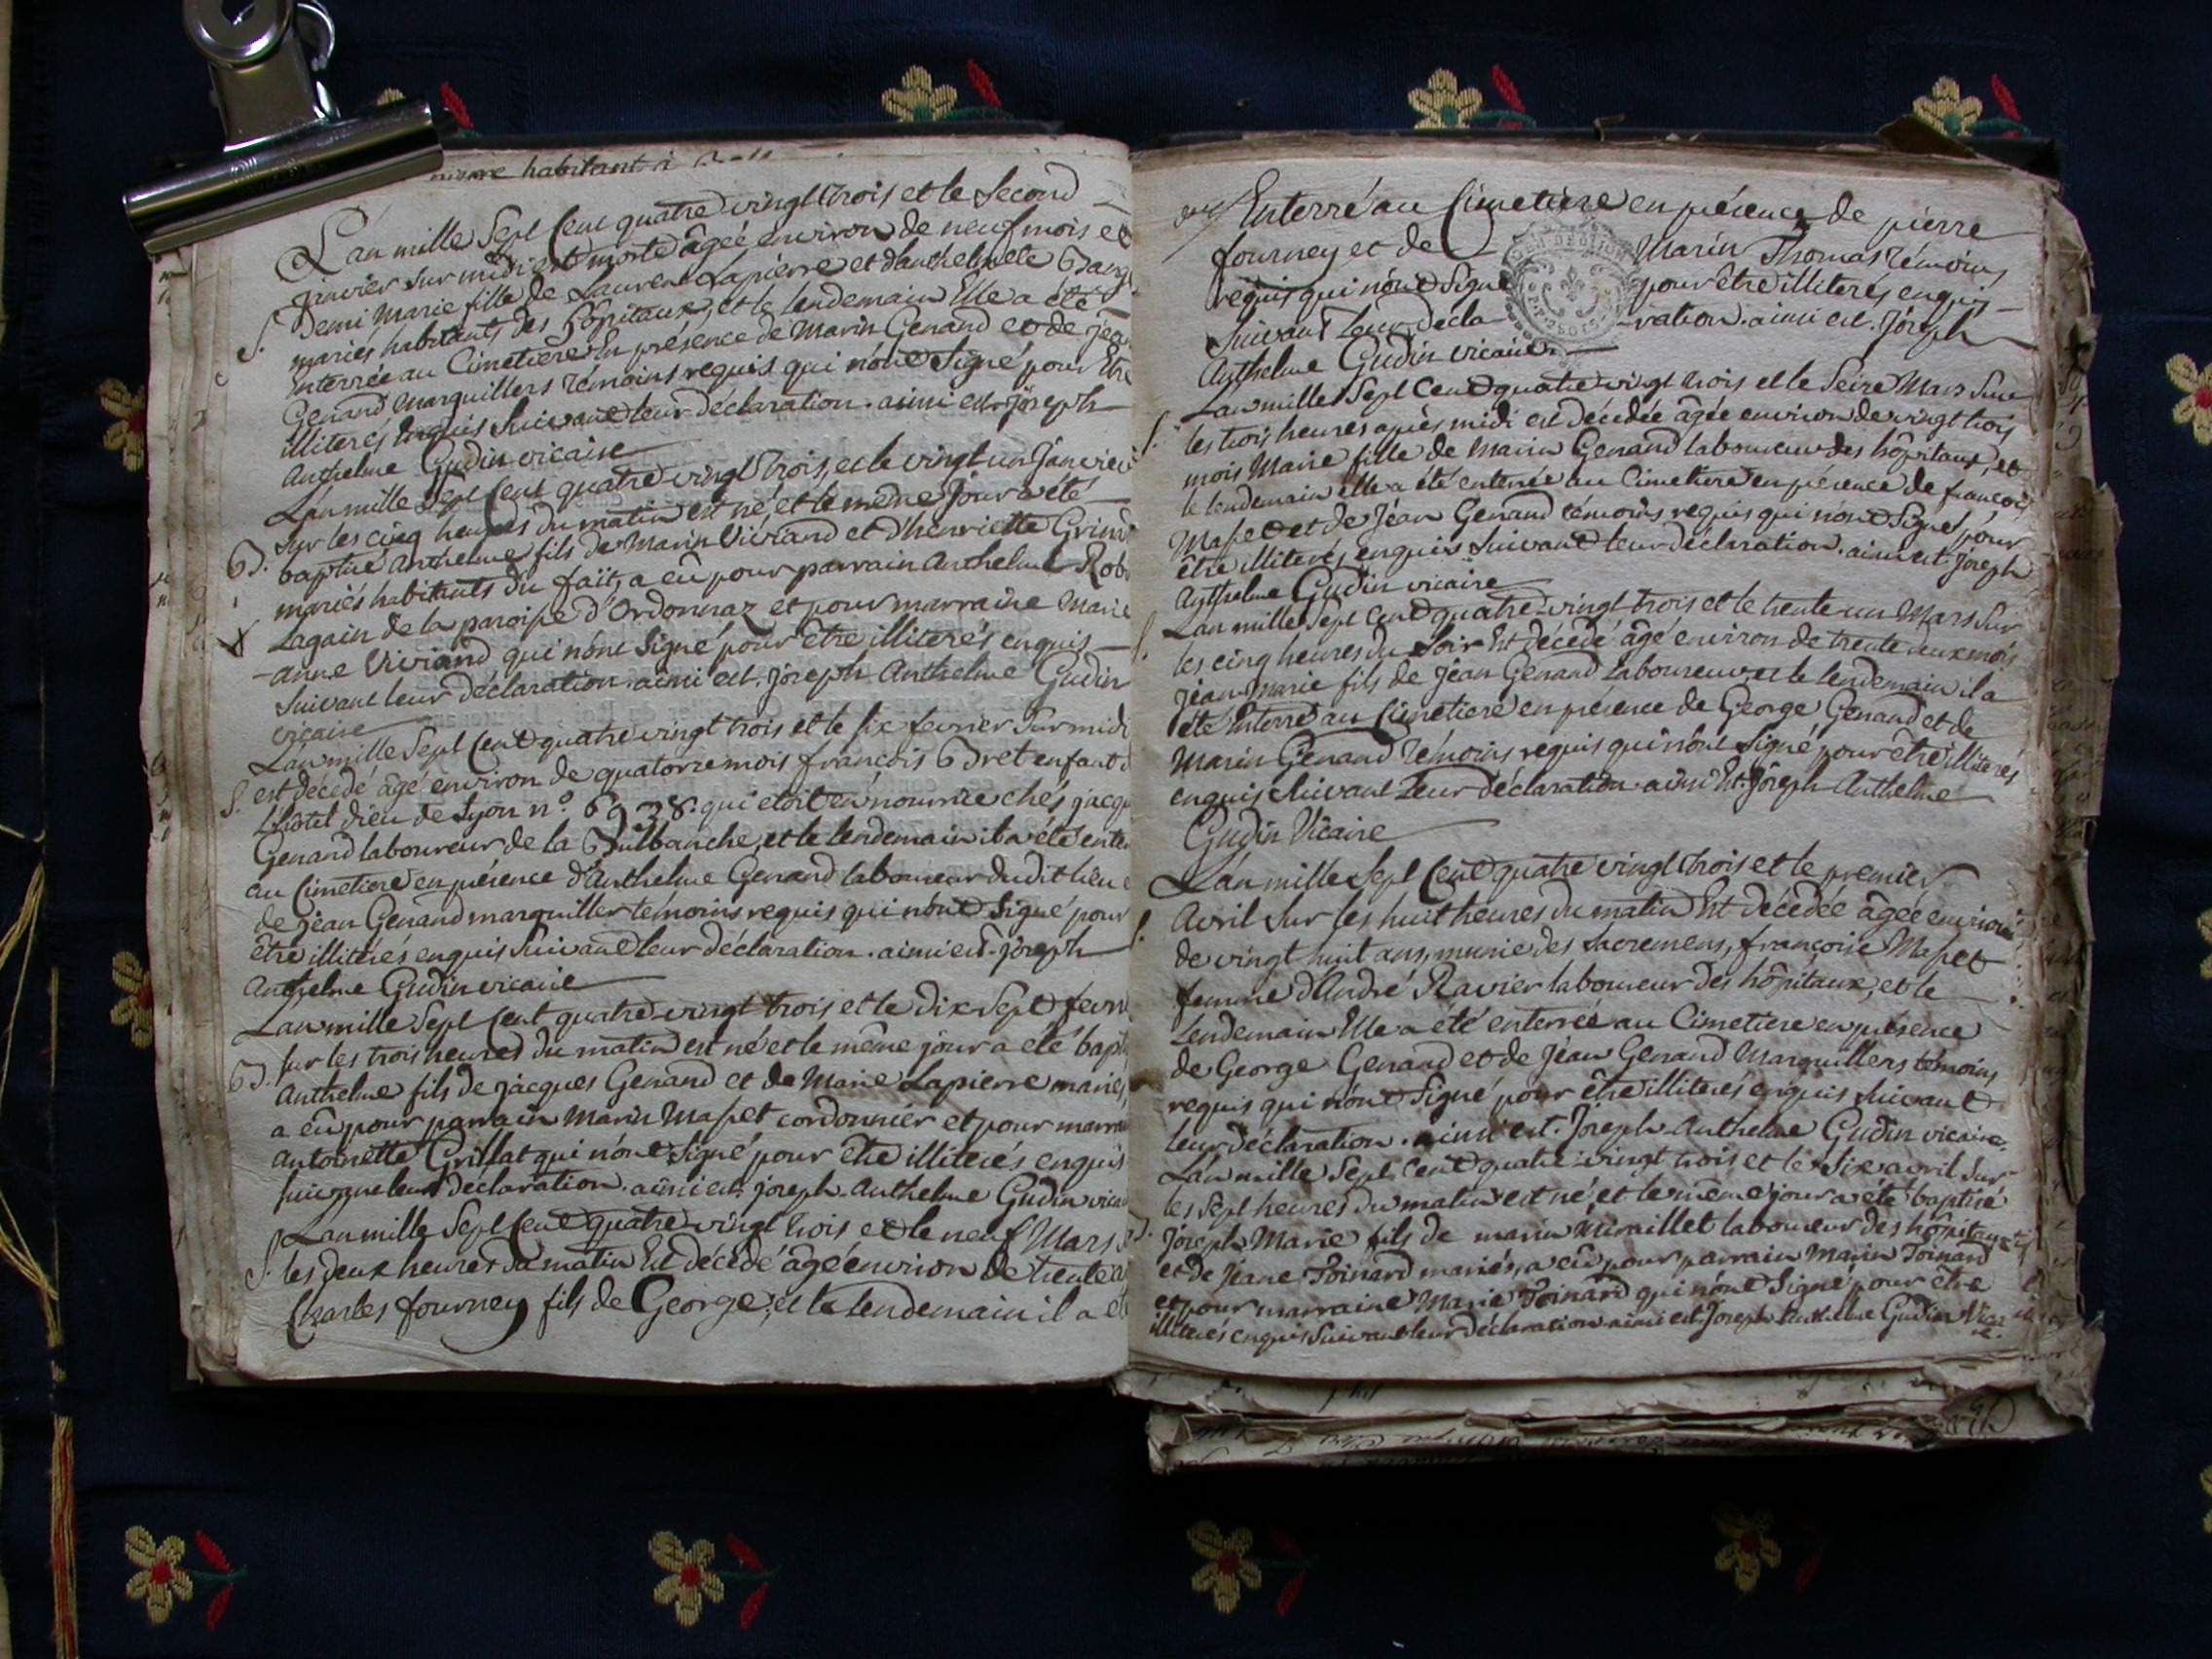 habitant à
L'an mille Sept Cent quatre vingt trois et le Second
janvier sur midi est morte âgée environ de neuf mois et
S. Demi Marie fille de Laurent Lapierre et d'anthelmete
mariés habitants des hôpitaux, et le lendemain Elle a été
Enterrée au Cimetiere En présence de Marin Genand et de jea
Genand marguillers témoins requis qui n'ont Signé pour Etre
illiterés Enquis Suivant leur déclaration. ainsi est. joseph
Anthelme Gudin vicaire
L'an mille Sept Cent quatre vingt trois, et le vingt un Janvier
Sur les cinq heures du matin est né, et le même Jour a été
B. baptisé Anthelme fils de Marin Vivrand et d'henriette
mariés habitants du fait, a eu pour parrain Anthelme Rob
Lagain de la paroisse d'Ordonnaz et pour marraine Marie
anne Viviand qui n'ont Signé pour être illiterés enquis
Suivant leur déclaration. ainsi est. joseph Anthelme Gudin
vicaire
L'an mille Sept Cent quatre vingt trois et le six fevrier Sur midi
S. est décédé âgé environ de quatorze mois françois Bret enfant d
L'hôtel dieu de Lyon n° 6938. qui etoit en nourrice chés jacqu
Genand laboureur de la Bulbanche, et le lendemain il a été enter
au Cimetiere en présence d'Anthelme Genand laboureur dudit lieu e
de jean Genand marguiller témoins requis qui n'ont Signé pour
être illiterés enquis Suivant leur déclaration. ainsi est. joseph
Anthelme Gudin vicaire
L'an mille Sept Cent quatre vingt trois et le dix Sept fevri
sur les trois heures du matin est né et le même jour a été bapt
B. Anthelme fils de jacques Genand et de Marie Lapierre mariés,
a eu pour parrain Marin Maset cordonnier et pour marra
Antoinette Grillat qui n'ont Signé pour être illiterés enquis
suivant leur declaration. ainsi est. joseph Anthelme Gudin vica
L'an mille Sept Cent quatre vingt trois et le neuf Mars
S. les deux heures du matin Est décédé âgé environ de trente a
Charles fourney fils de George, et le lendemain il a ét
Enterré au Cimetiere en présence de pierre
fourney et de Marin Thomas témoins
requis qui n'ont Signé pour être illiterés enquis
Suivant leur déclaration. ainsi est. Joseph
Anthelme Gudin vicaire
L'an mille Sept Cent quatre vingt trois et le Seize Mars Sur
S. les trois heures après midi est décédée âgée environ de vingt trois
mois Marie fille de Marin Genand laboureur des hôpitaux, et
le lendemain elle a été enterrée au Cimetiere en présence de françois
Maset et de Jéan Genand témoins requis qui n'ont Signé pour
être illiterés enquis Suivant leur déclaration. ainsi est. Joseph
Anthelme Gudin vicaire
L'an mille Sept Cent quatre vingt trois et le trente un Mars Sur
S. les cinq heures du Soir Est décédé âgé environ de trente deux mois
Jéan-Marie fils de Jéan Genand Laboureur, et le lendemain il a
été Enterré au Cimetiere en présence de George Genand et de
Marin Genand témoins requis qui n'ont Signé pour être illiterés
enquis Suivant Leur déclaration ainsi Est. Joseph Anthelme
Gudin Vicaire
L'an mille Sept Cent quatre vingt trois et le premier
Avril Sur les huit heures du matin Est décédée âgée environ
S. de vingt huit ans, munie des Sacremens, françoise Maset
femme d'André Ravier laboureur des hôpitaux, et le
Lendemain Elle a été enterrée au Cimetiere en présence
de George Genand et de Jéan Genand Marguillers témoins
requis qui n'ont Signé pour être illiterés enquis Suivant
leur déclaration. ainsi est. Joseph Anthelme Gudin vicaire
L'an mille Sept Cent quatre vingt trois et le Six avril Sur
les Sept heures du matin est né, et le même jour a été baptisé
Joseph Marie fils de marin Miraillet laboureur des hôpitaux
et de Jéane Toinard mariés, a eu pour parrain Marin Toinard
et pour marraine Marie Toinard qui n'ont Signé pour être
illiterés enquis Suivant leur déclaration ainsi est. Joseph Anthelme Gudin Vicaire